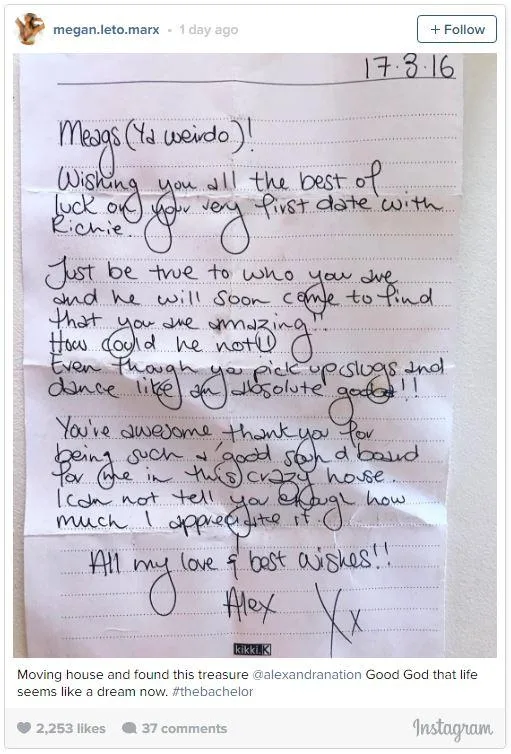 megan.leto.marx • 1 day ago
+ Follow
17·3·16
Meags (Ya weirdo)!
Wishing you all the best of
luck on your very first date with
Richie.
Just be true to who you are
and he will soon come to find
that you are amazing!!
How could he not!!
Even though ya pick up slugs and
dance like an absolute goose!!
You're awesome thank you for
being such a good sound board
for me in this crazy house.
I can not tell you enough how
much I appreciate it.
All my love & best wishes!!
Alex Xx
kikki.K
Moving house and found this treasure @alexandranation Good God that life
seems like a dream now. #thebachelor
2,253 likes 37 comments
Instagram